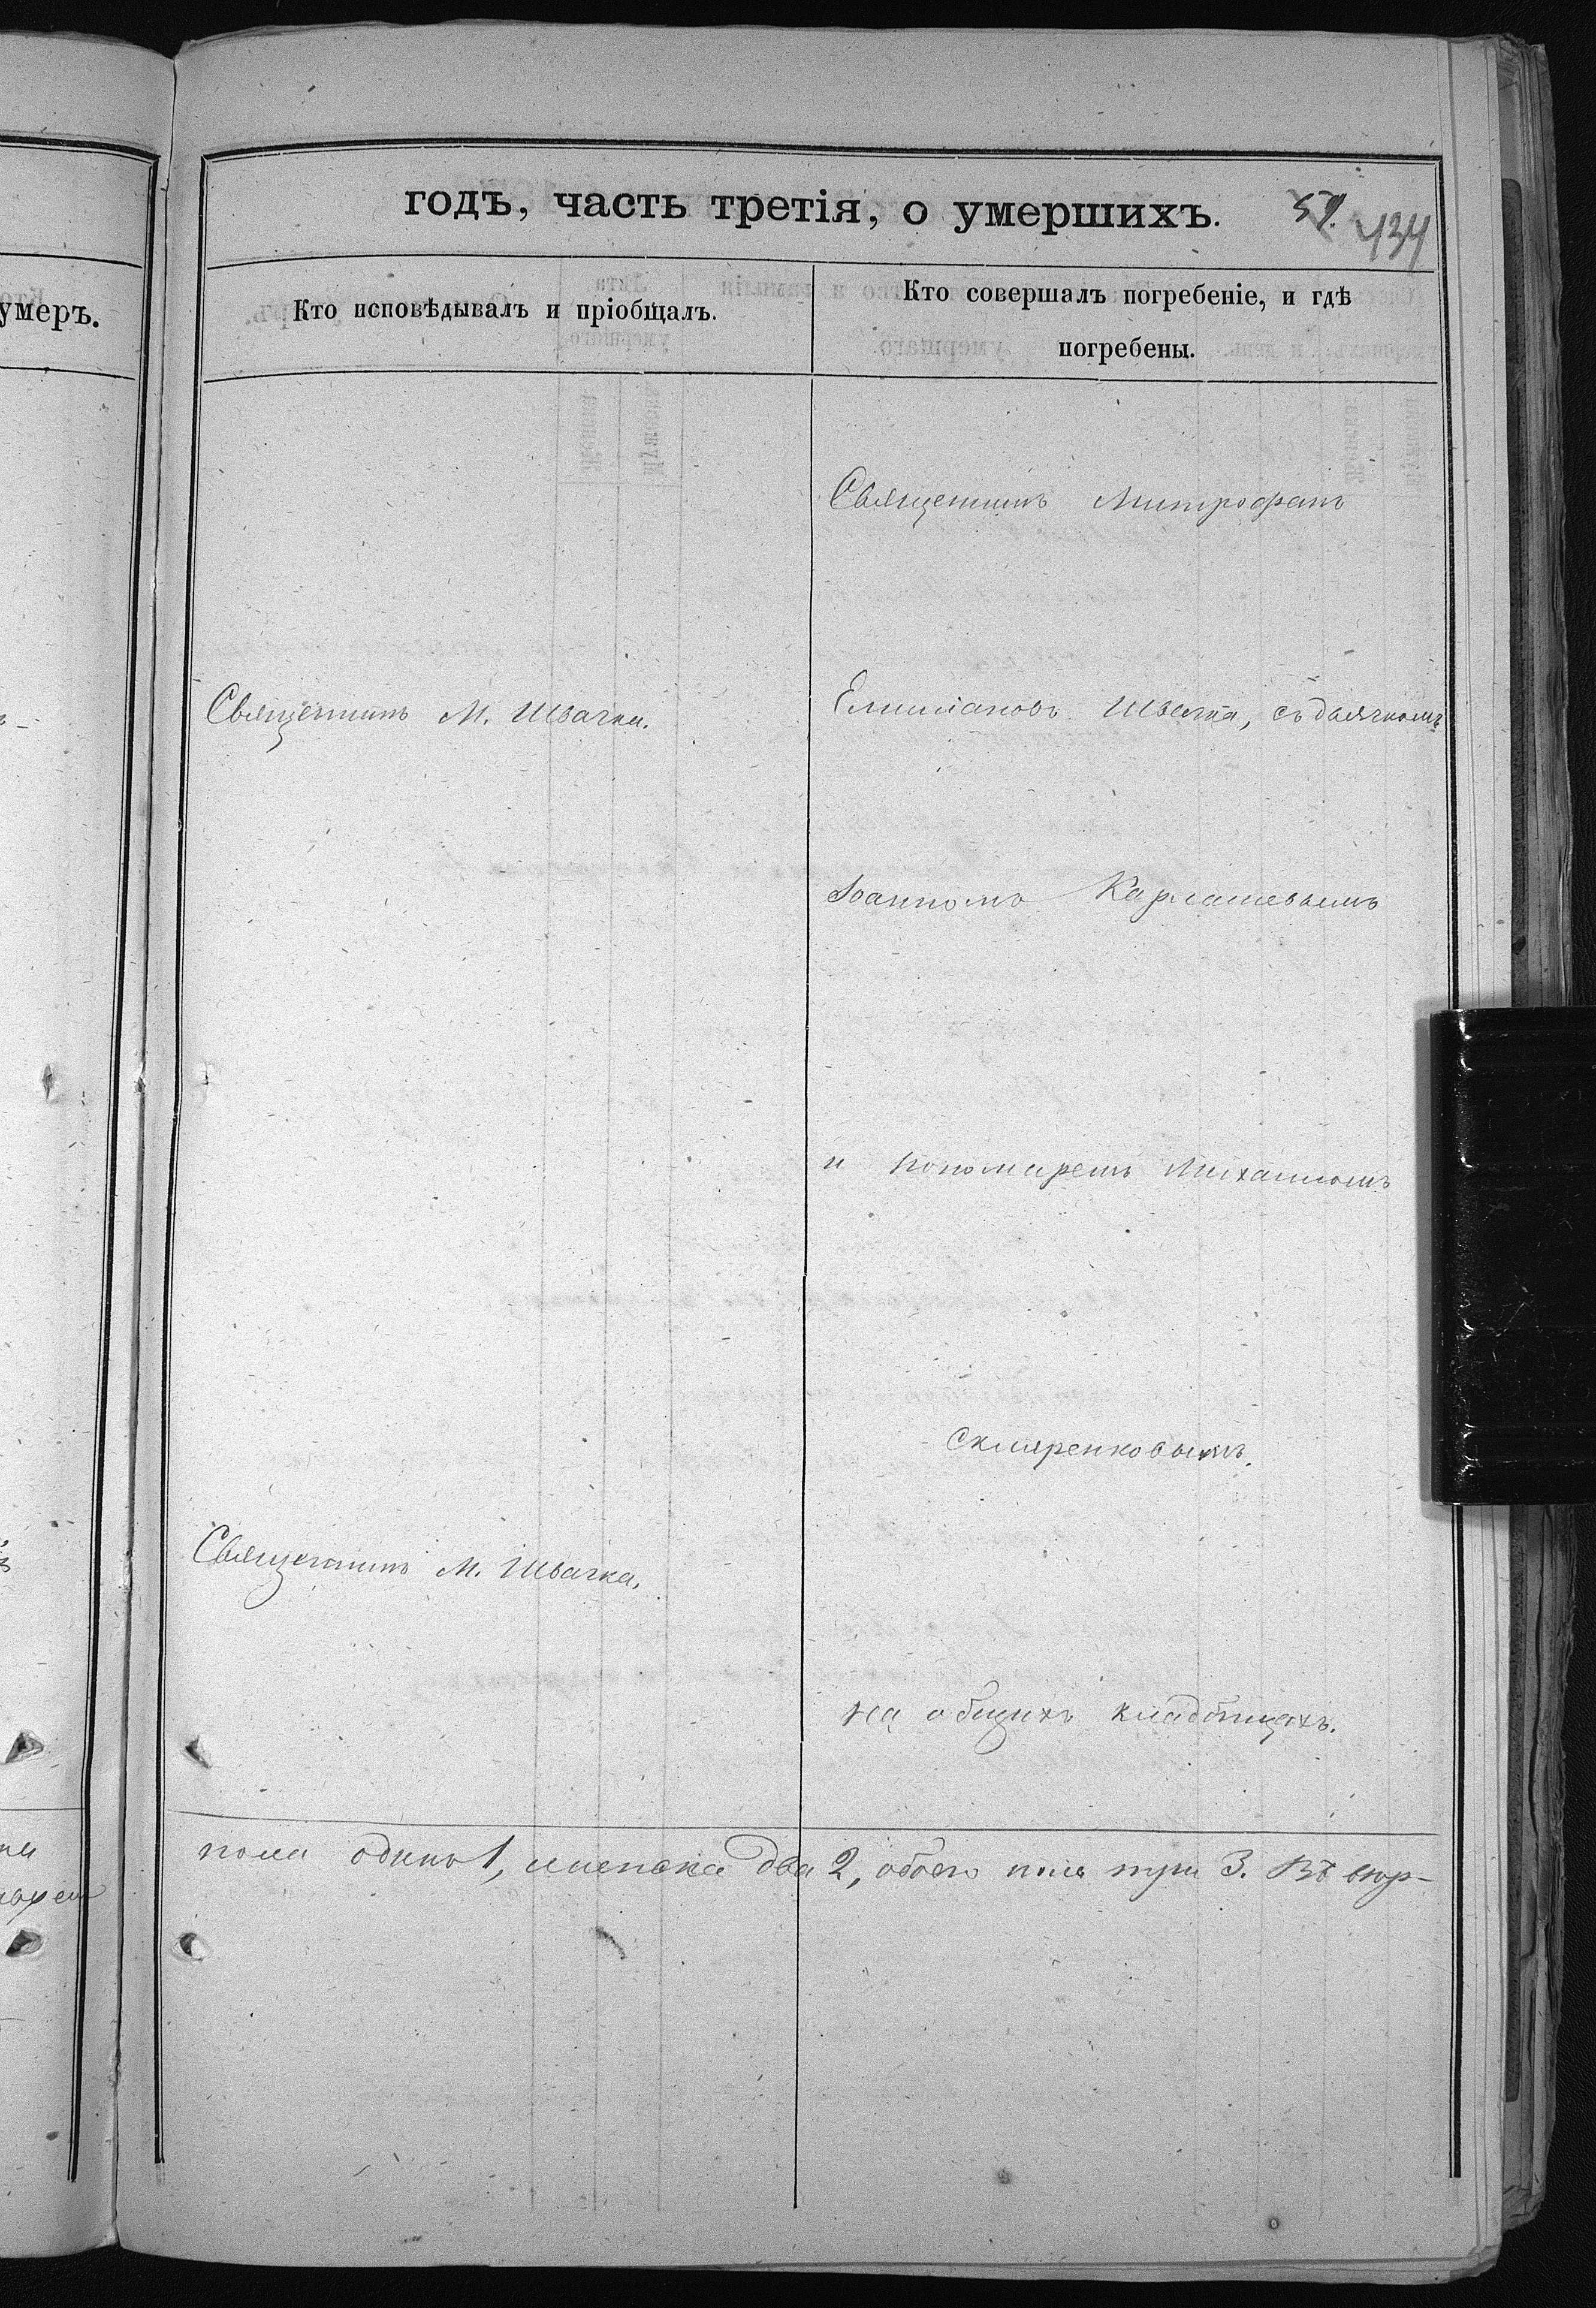 умеръ.
годъ, часть третія, о умершихъ.
57.
434
Кто исповѣдывалъ и пріобщалъ.
Кто совершалъ погребеніе, и гдѣ
погребены.
Священникъ Митрофанъ
Священникъ М. Швачка.
Емиліановъ Швачка, съ дьячкомъ
Іоанномъ Карпашевымъ
и пономаремъ Михаиломъ
Скляренковымъ.
Священникъ М. Швачка.
на общихъ кладбищахъ.
пола одинъ 1, женска два 2, обоего пола три 3. Въ